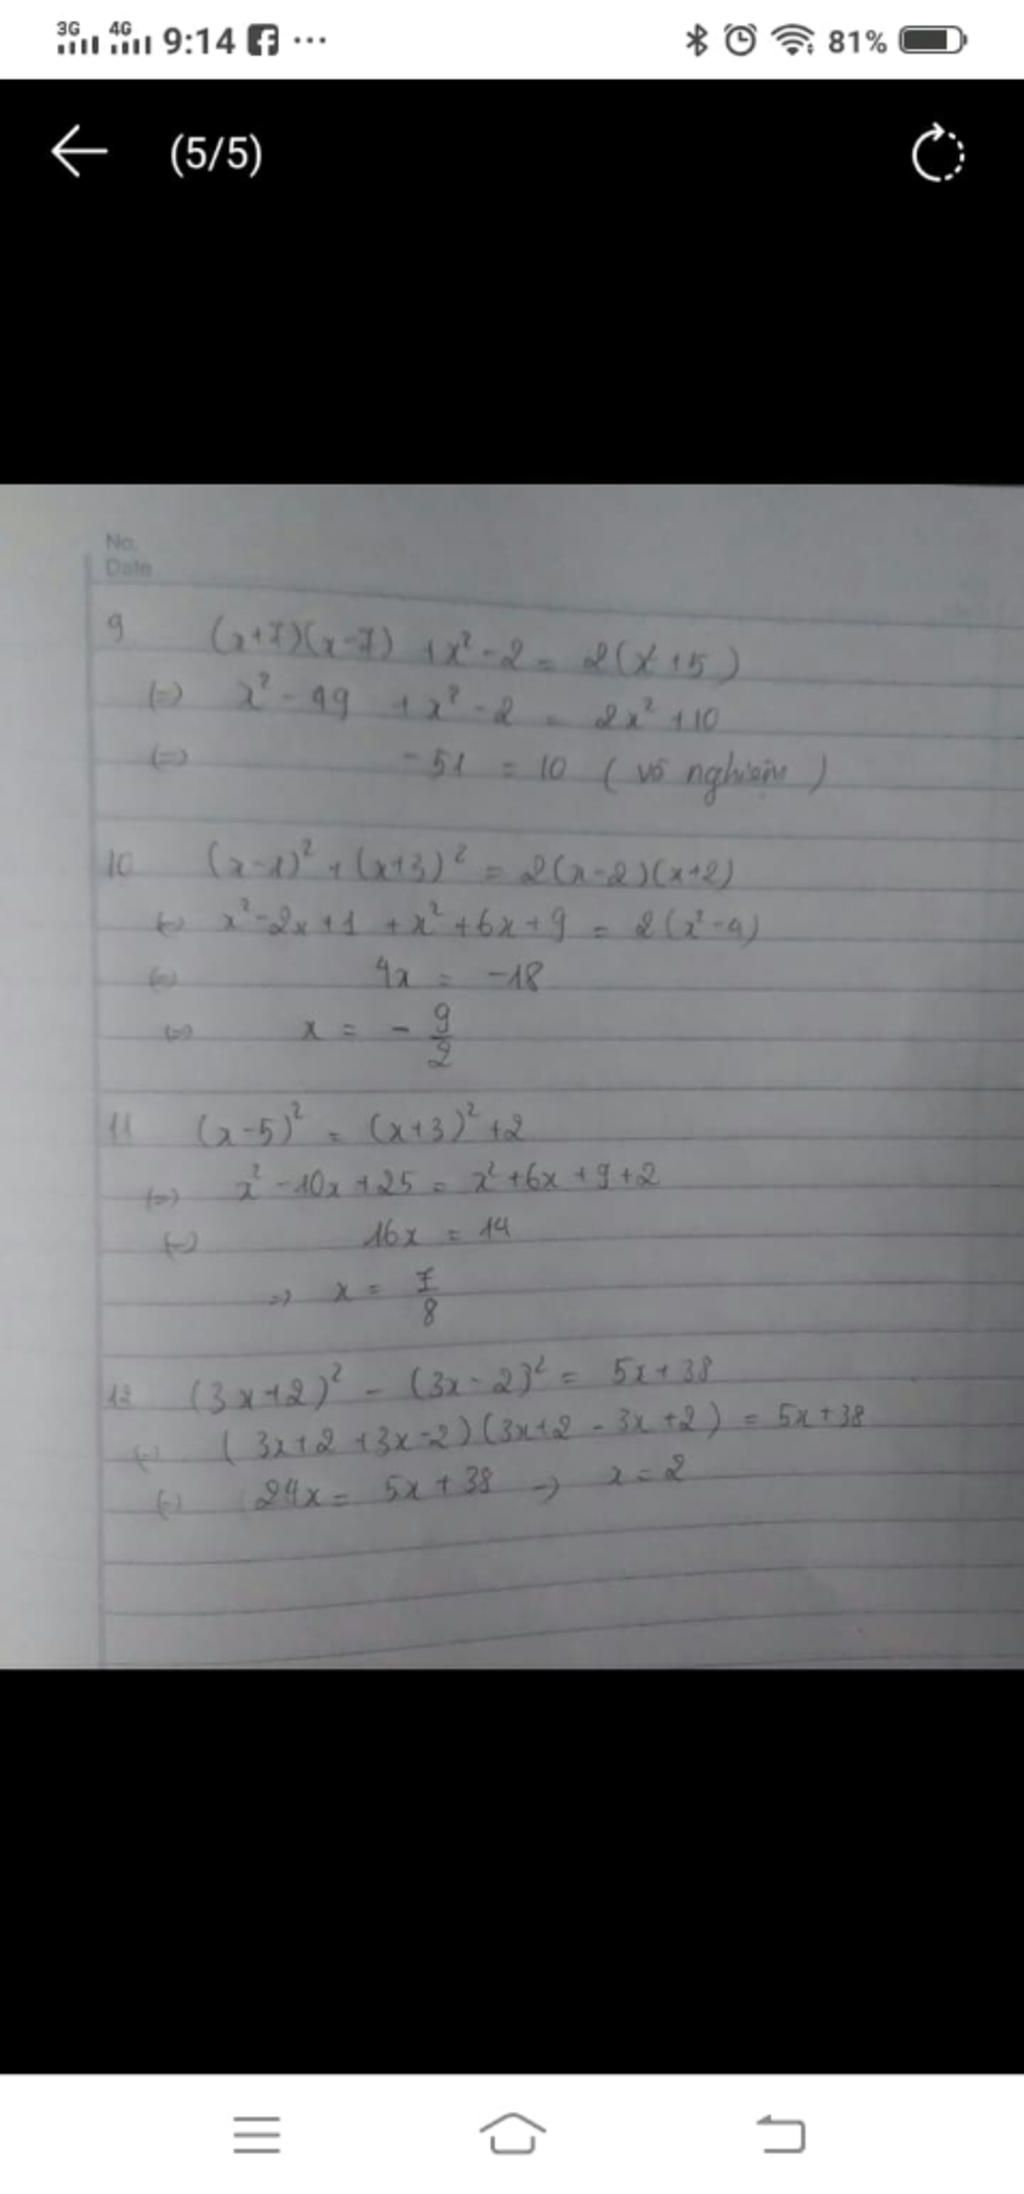 3G 4G 9:14 ... 81%
(5/5)
No.
Date
9 (x+7)(x-7) + x² - 2 = 2(x² + 5)
(=) x² - 49 + x² - 2 = 2x² + 10
(=) -51 = 10 (vô nghiệm)
10 (x-1)² + (x+3)² = 2(x-2)(x+2)
(=) x² - 2x + 1 + x² + 6x + 9 = 2(x² - 4)
(=) 4x = -18
(=) x = - 9/2
11 (x-5)² = (x+3)² + 2
(=) x² - 10x + 25 = x² + 6x + 9 + 2
(=) 16x = 14
=> x = 7/8
12 (3x+2)² - (3x-2)² = 5x + 38
(=) (3x+2+3x-2)(3x+2-3x+2) = 5x+38
(=) 24x = 5x + 38 → x = 2